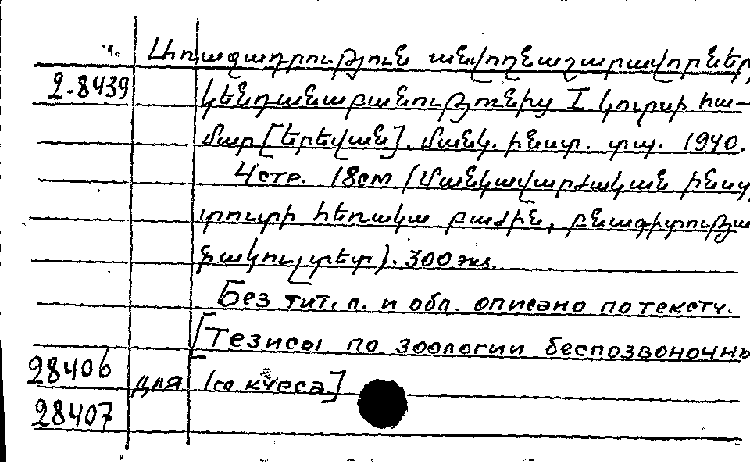 Առաջադրություն անողնաշարավորների
2-8439 կենդանաբանությունից I կուրսի հա-
մար [Երեվան]. Մանկ. ինստ. տպ. 1940.
4 стр. 18 см (Մանկավարժական ինստ
տուտի հեռակա բաժին, բնագիտության
ֆակուլտետ). 300 экз.
Без тит. л. и обл. описано по тексту.
[Тезисы по зоологии беспозвоночн
28406 для I го курса]
28407